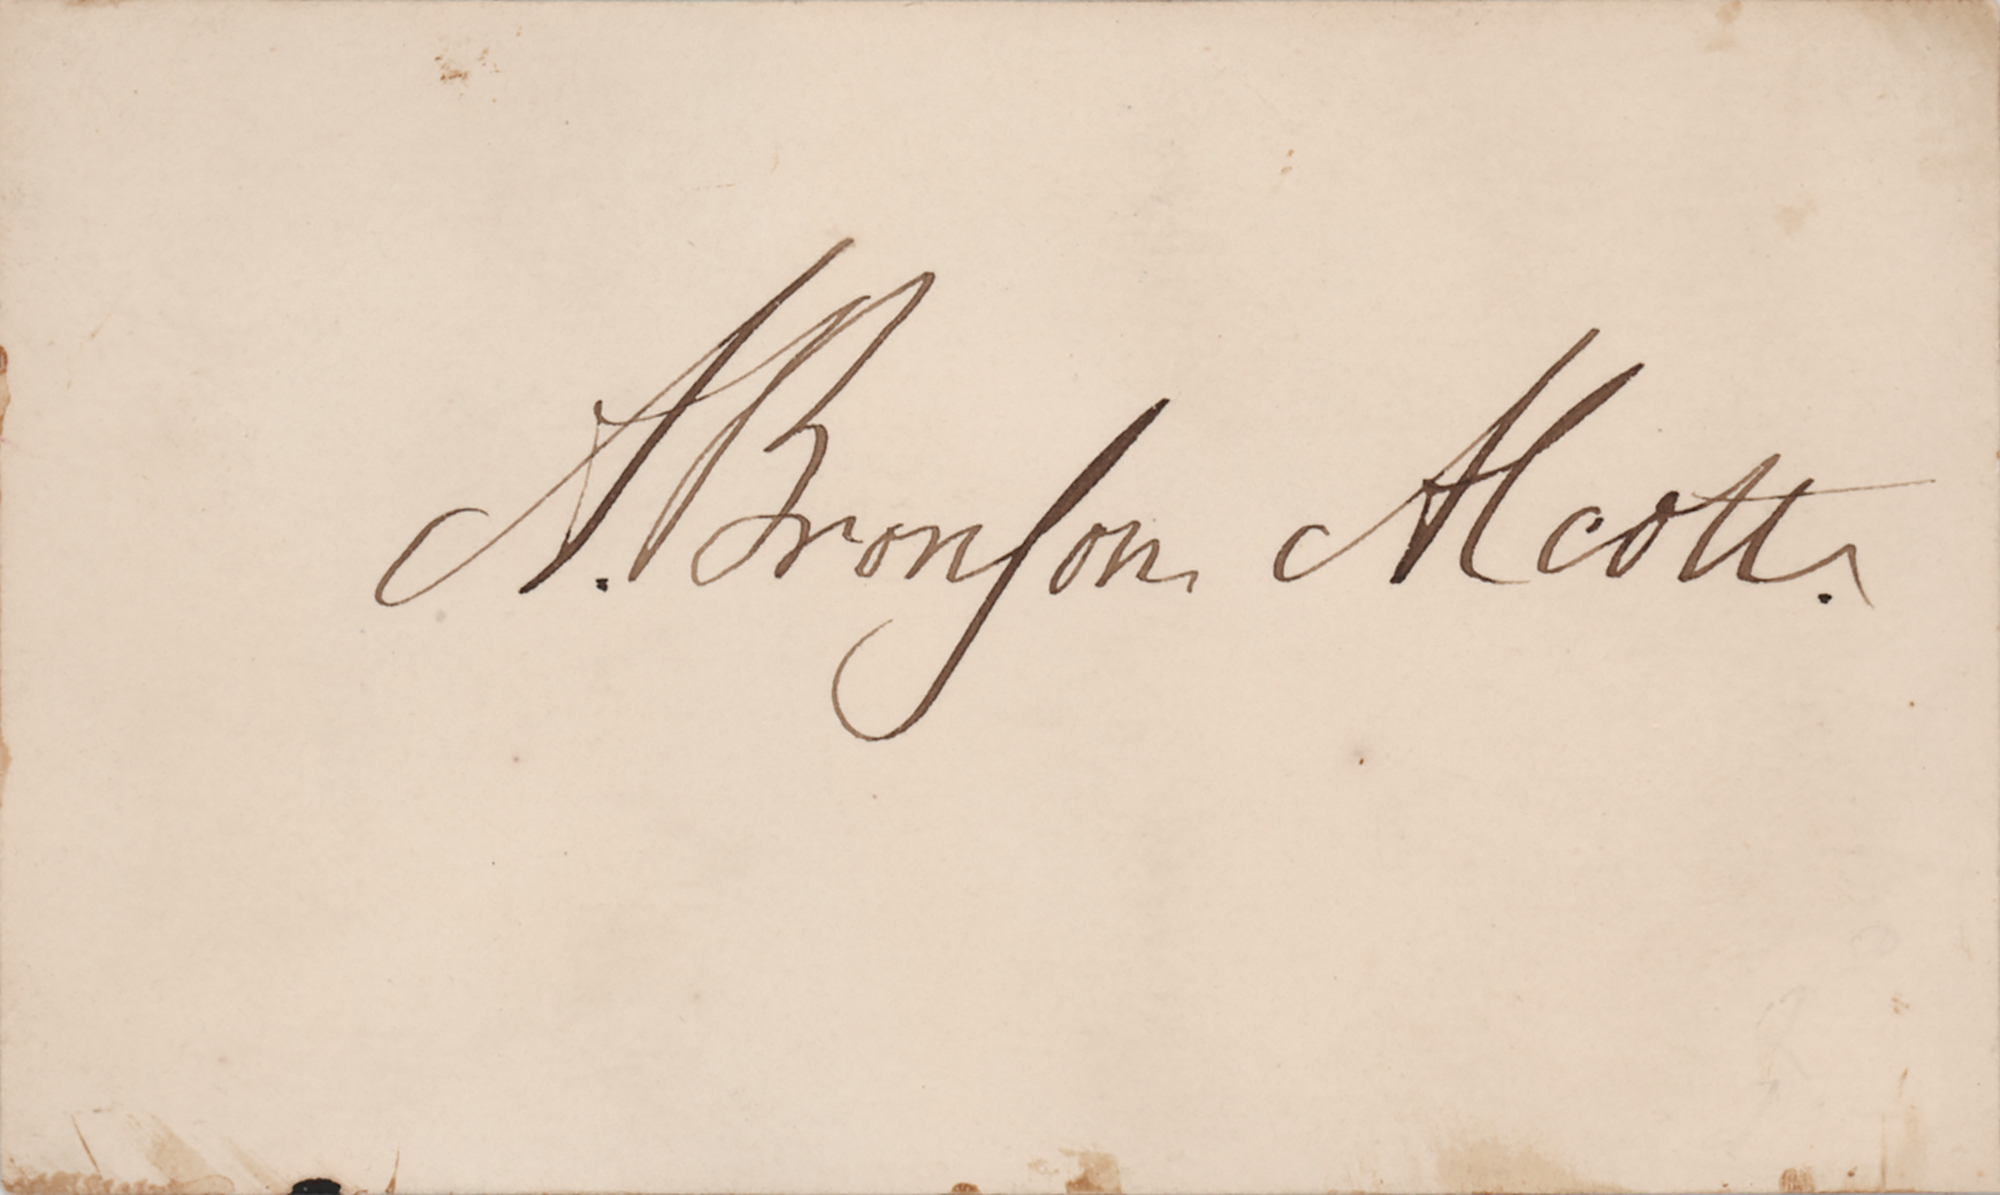 A. Bronson Alcott.